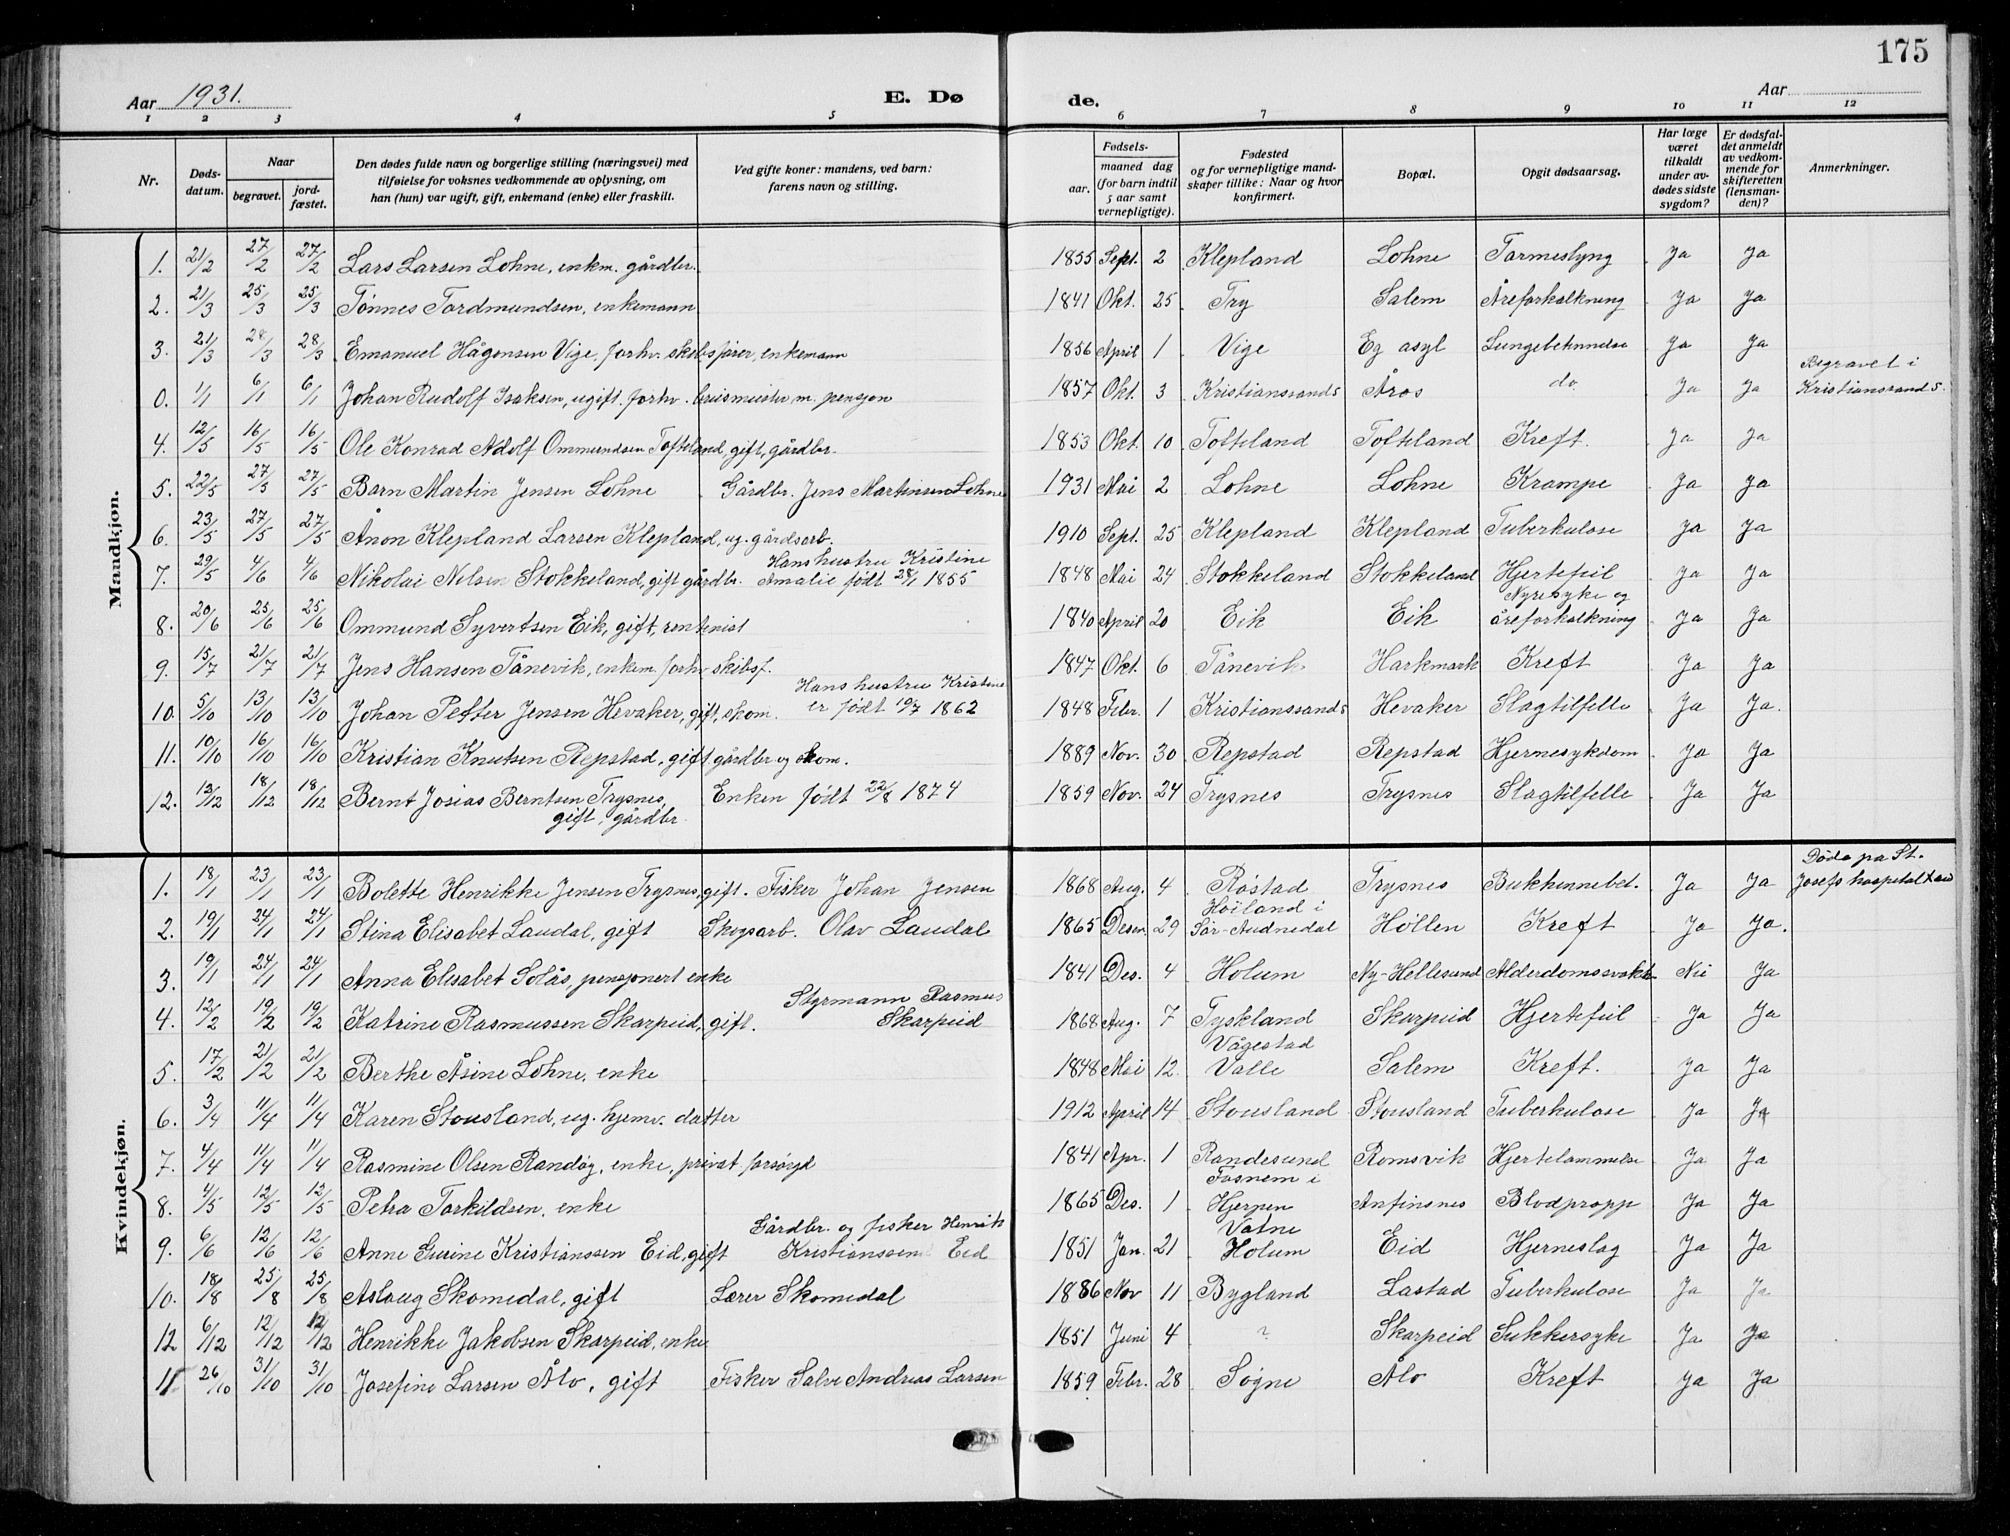 175
Aar 1931. E. Dø de. Aar
1 2 3 4 5 6 7 8 9 10 11 12
Nr.
Døds-
datum.
Naar
begravet.
jord-
fæstet.
Den dødes fulde navn og borgerlige stilling (næringsvei) med
tilføielse for voksnes vedkommende av oplysning, om
han (hun) var ugift, gift, enkemand (enke) eller fraskilt.
Ved gifte koner: mandens, ved barn:
farens navn og stilling.
Fødsels-
aar.
maaned dag
(for barn indtil
5 aar samt
vernepligtige).
Fødested
og for vernepligtige mand-
skaper tillike: Naar og hvor
konfirmert.
Bopæl.
Opgit dødsaarsag.
Har læge
været
tilkaldt
under av-
dødes sidste
sygdom?
Er dødsfal-
det anmeldt
av vedkom-
mende for
skifteretten
(lensman-
den)?
Anmerkninger.
Mandkjøn.
1. 21/2 27/2 27/2 Lars Larsen Lohne, enkm. gårdbr. 1855 Sept. 2 Klepland Lohne Tarmeslyng Ja Ja
2. 21/3 25/3 25/3 Tønnes Tordmundsen, enkemann 1841 Okt. 25 Try Salem Åreforkalkning Ja Ja
3. 21/3 28/3 28/3 Emanuel Hågonsen Vige, forhv. skibsfører, enkemann 1856 April 1 Vige Eg asyl Lungebetennelse Ja Ja
Begravet i
0. 1/1 6/1 6/1 Johan Rudolf Isaksen, ugift. forhv. bruismester m. pensjon 1857 Okt. 3 Kristianssand S Åros do. Ja Ja Kristianssand S.
4. 12/5 16/5 16/5 Ole Konrad Adolf Ommundsen Tofteland, gift, gårdbr. 1853 Okt. 10 Tofteland Tofteland Kreft. Ja Ja
5. 22/5 27/5 27/5 Barn Martin Jensen Lohne Gårdbr. Jens Martinsen Lohne 1931 Mai 2 Lohne Lohne Krampe Ja Ja
6. 23/5 27/5 27/5 Ånon Klepland Larsen Klepland, ug. gårdsarb. 1910 Sept. 25 Klepland Klepland Tuberkulose Ja Ja
Hans hustru Kristine
7. 29/5 4/6 4/6 Nikolai Nelsen Stokkeland, gift gårdbr. Amalie født 28/1 1855 1848 Mai 24 Stokkeland Stokkeland Hjertefeil Ja Ja
Nyresyke og
8. 20/6 25/6 25/6 Ommund Syvertsen Eik, gift, rentenist 1840 April 20 Eik Eik åreforkalkning Ja Ja
9. 15/7 21/7 21/7 Jens Hansen Tånevik, enkem. forhv. skibsf. 1847 Okt. 6 Tånevik Harkmark Kreft Ja Ja
Hans hustru Kristine
10. 5/10 13/10 13/10 Johan Petter Jensen Hevaker, gift, skom. er født 19/7 1862 1848 Febr. 1 Kristianssand S Hevaker Slagtilfelle Ja Ja.
11. 10/10 16/10 16/10 Kristian Knutsen Repstad, gift gårdbr og skom. 1889 Nov. 30 Repstad Repstad Hjernesykdom Ja Ja
12. 13/12 18/12 18/12 Bernt Josias Berntsen Trysnes, Enken født 22/8 1874 1859 Nov. 24 Trysnes Trysnes Slagtilfelle Ja Ja
gift, gårdbr.
Kvindekjøn.
Døde pa St.
1. 18/1 23/1 23/1 Bolette Henrikke Jensen Trysnes, gift. Fisker Johan Jensen 1868 Aug. 4 Røstad Trysnes Bukhinnebet. Ja Ja Josefs hospital
Høiland i
2. 19/1 24/1 24/1 Stina Elisabet Laudal, gift Skogsarb. Olav Laudal 1865 Desem. 29 Sør-Audnedal Høllen Kreft Ja Ja.
3. 19/1 24/1 24/1 Anna Elisabet Solås, pensjonert enke 1841 Des. 4 Holum Ny-Hellesund Alderdomssvakh. Nei Ja
Styrmann Rasmus
4. 12/2 19/2 19/2 Katrine Rasmussen Skarpeid, gift. Skarpeid 1868 Aug. 7 Tyskland Skarpeid Hjertefeil Ja Ja
Vågestad
5. 17/2 21/2 21/2 Berthe Åsine Lohne, enke 1848 Mai 12. Valle Salem Kreft. Ja Ja
6. 3/4 11/4 11/4 Karen Stousland, ug. hjemv. datter 1912 April 14 Stousland Stousland Tuberkulose Ja Ja
7. 4/4 11/4 11/4 Rasmine Olsen Randøy, enke, privat forsørgd 1841 Apr. 1 Randesund Romsvik Hjertelammelse Ja Ja
Fosnem i
8. 4/5 12/5 12/5 Petra Torkildsen, enke 1865 Des. 1 Hjerpen Anfinsnes Blodpropp Ja Ja
Gårdbr. og fisker Henrik Vatne
9. 6/6 12/6 12/6 Anne Gurine Kristianssen Eid, gift Kristianssen Eid 1851 Jan. 21 Holum Eid Hjerneslag Ja Ja
10. 18/8 25/8 25/8 Aslaug Skomedal, gift Lærer Skomedal 1886 Nov 11 Bygland Lastad Tuberkulose Ja Ja
12 6/12 12/12 12/12 Henrikke Jakobsen Skarpeid, enke 1851 Juni 4 ? Skarpeid Sukkersyke Ja Ja
11 26/10 31/10 31/10 Josefine Larsen Ålo, gift Fisker Salve Andreas Larsen 1859 Febr. 28 Søgne Ålo Kreft Ja Ja